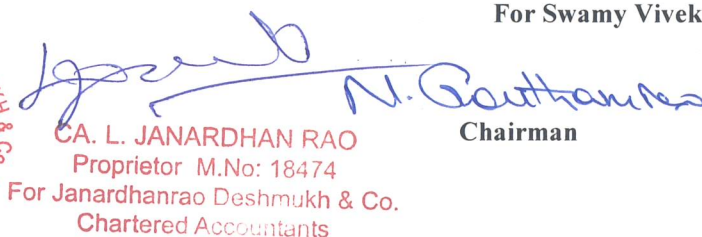 For Swamy Vivek
N. Gouthamrao
Chairman
CA. L. JANARDHAN RAO
Proprietor M.No: 18474
For Janardhanrao Deshmukh & Co.
Chartered Accountants
H & Co